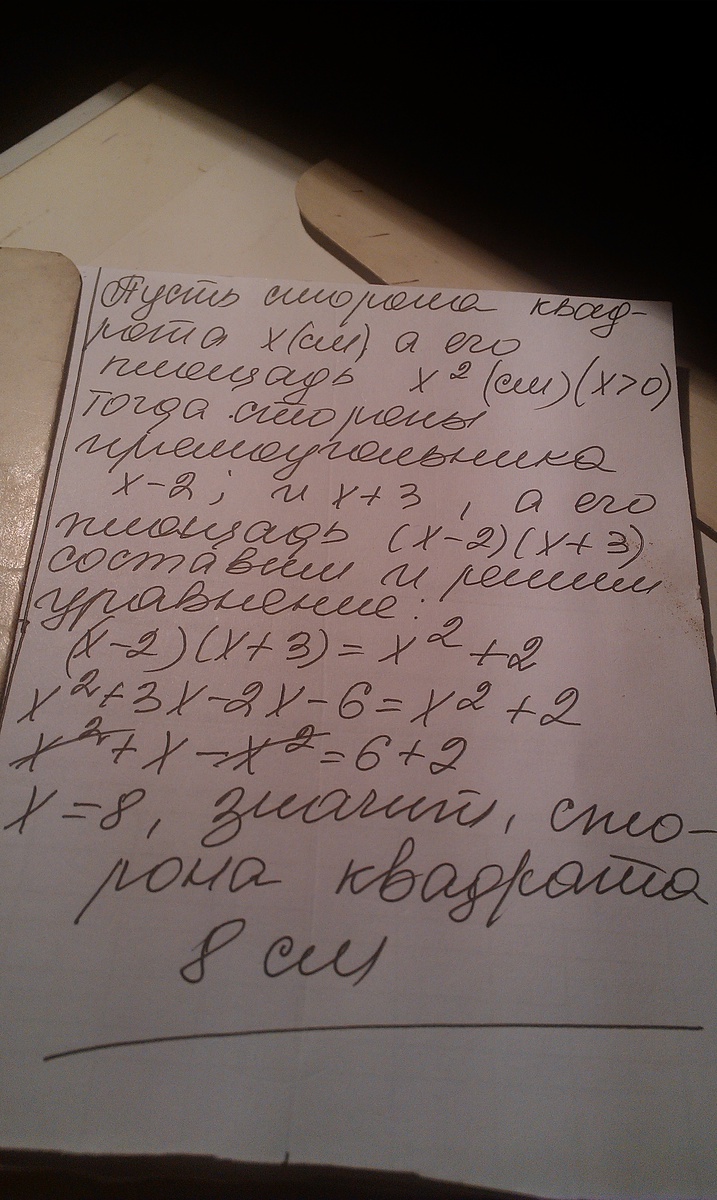 Пусть сторона квад-
рата x(см) а его
площадь x² (см) (x>0)
Тогда стороны
прямоугольника
x-2; и x+3, а его
площадь (x-2)(x+3)
составим и решим
уравнение:
(x-2)(x+3)=x²+2
x²+3x-2x-6=x²+2
x²+x-x²=6+2
x=8, значит, сто-
рона квадрата
8 см